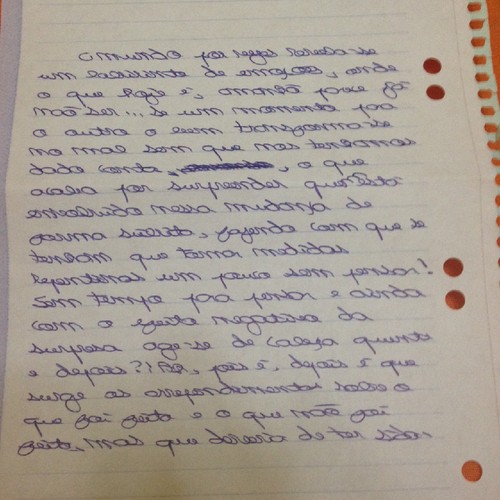 O mundo por vezes revela-se
um labirinto de emoções, onde
o que hoje é, amanhã pode já
não ser... se um momento para
o outro o bem transforma-se
no mal sem que nos tenhamos
dado conta, , o que
acaba por surpreender quem está
envolvido nessa mudança de
forma súbita, fazendo com que se
tenham que tomar medidas
repentinas um pouco sem pensar!
Sem tempo para pensar e ainda
com o efeito negativo da
surpresa age-se de cabeça quente
e depois?! Ah, pois é, depois é que
surge os arrependimentos sobre o
que foi feito e o que não foi
feito, mas que deveria de ter sido.